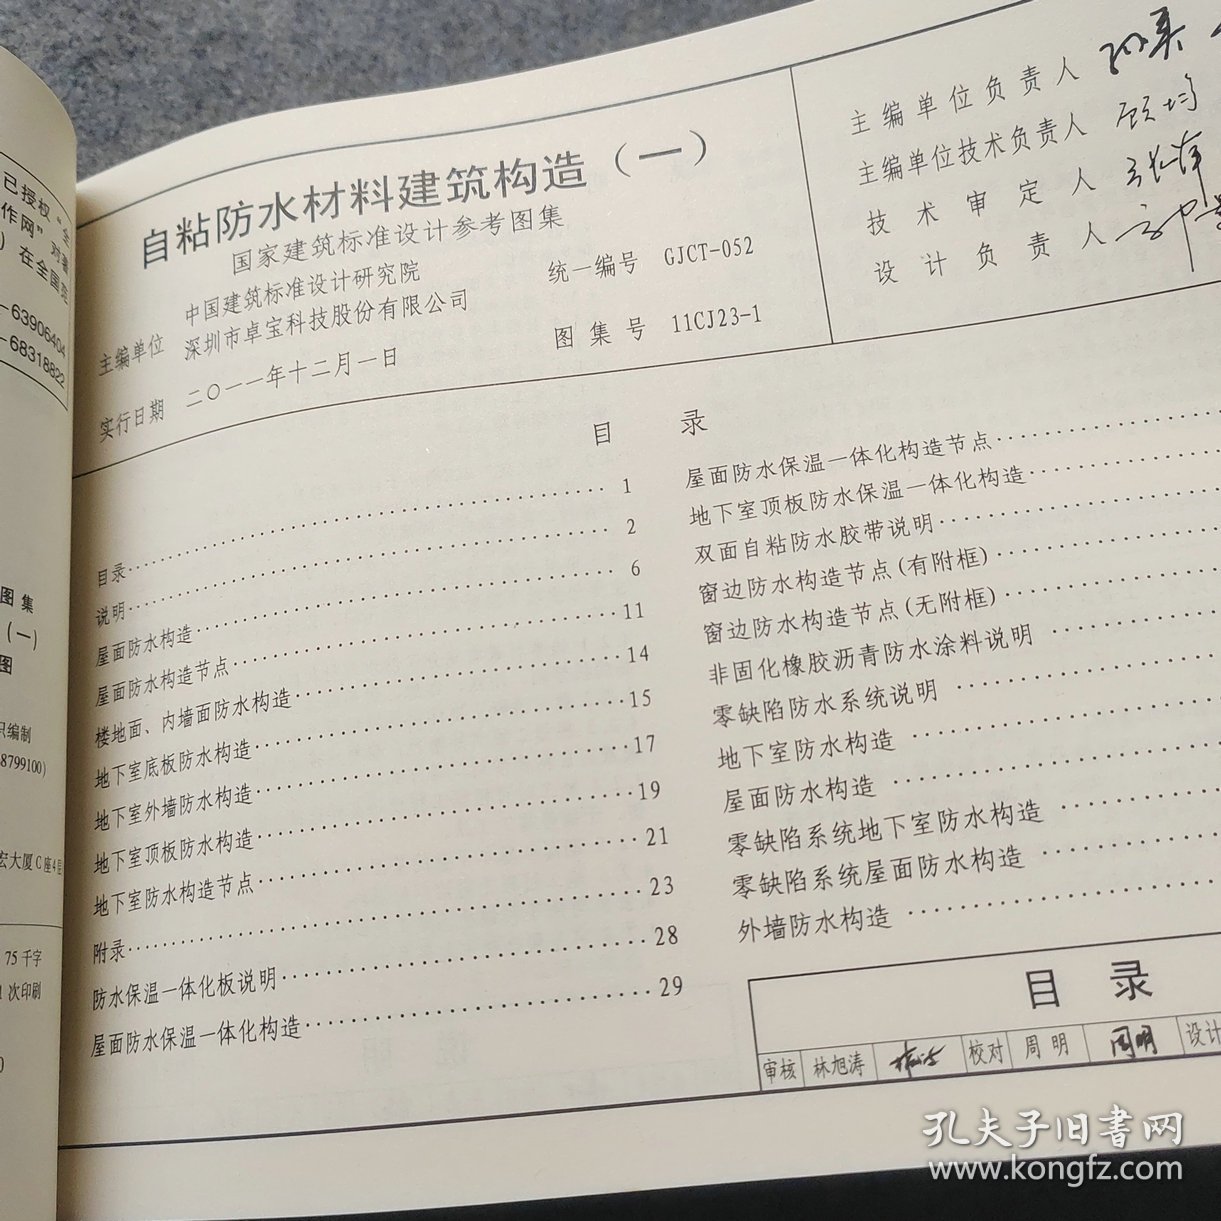 已授权“全
作网”对著
）在全国范
-63906404
-68318822
图集
（一）
图
只编制
8799100)
宏大厦C座4层
75千字
1次印刷
自粘防水材料建筑构造（一）
国家建筑标准设计参考图集
主编单位 中国建筑标准设计研究院
深圳市卓宝科技股份有限公司
统一编号 GJCT-052
实行日期 二〇一一年十二月一日
图集号 11CJ23-1
主编单位负责人
主编单位技术负责人
技术审定人
设计负责人
目 录
目录 1
说明 2
屋面防水构造 6
屋面防水构造节点 11
楼地面、内墙面防水构造 14
地下室底板防水构造 15
地下室外墙防水构造 17
地下室顶板防水构造 19
地下室防水构造节点 21
附录 23
防水保温一体化板说明 28
屋面防水保温一体化构造 29
屋面防水保温一体化构造节点
地下室顶板防水保温一体化构造
双面自粘防水胶带说明
窗边防水构造节点(有附框)
窗边防水构造节点(无附框)
非固化橡胶沥青防水涂料说明
零缺陷防水系统说明
地下室防水构造
屋面防水构造
零缺陷系统地下室防水构造
零缺陷系统屋面防水构造
外墙防水构造
目 录
审核 林旭涛 校对 周明 周明 设计
孔夫子旧書网
www.kongfz.com